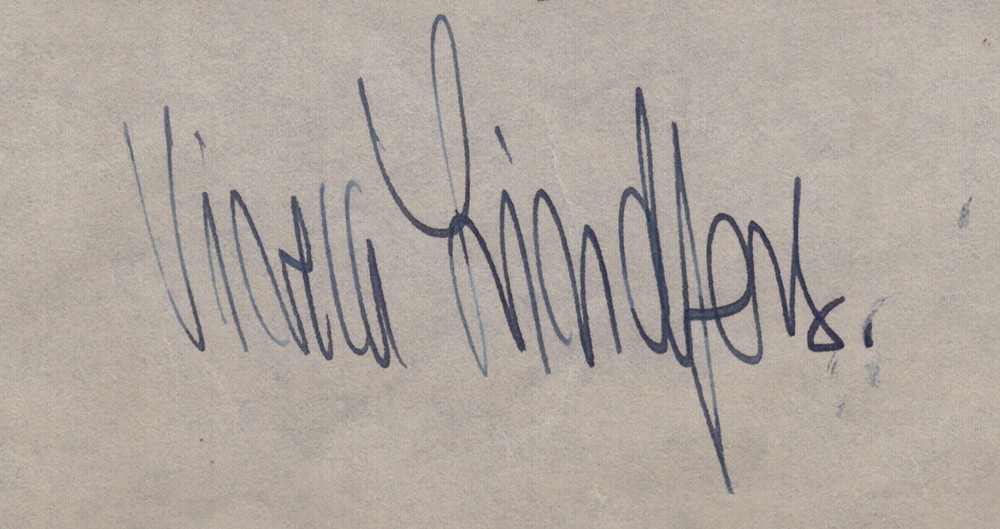 Viveca Lindfors.